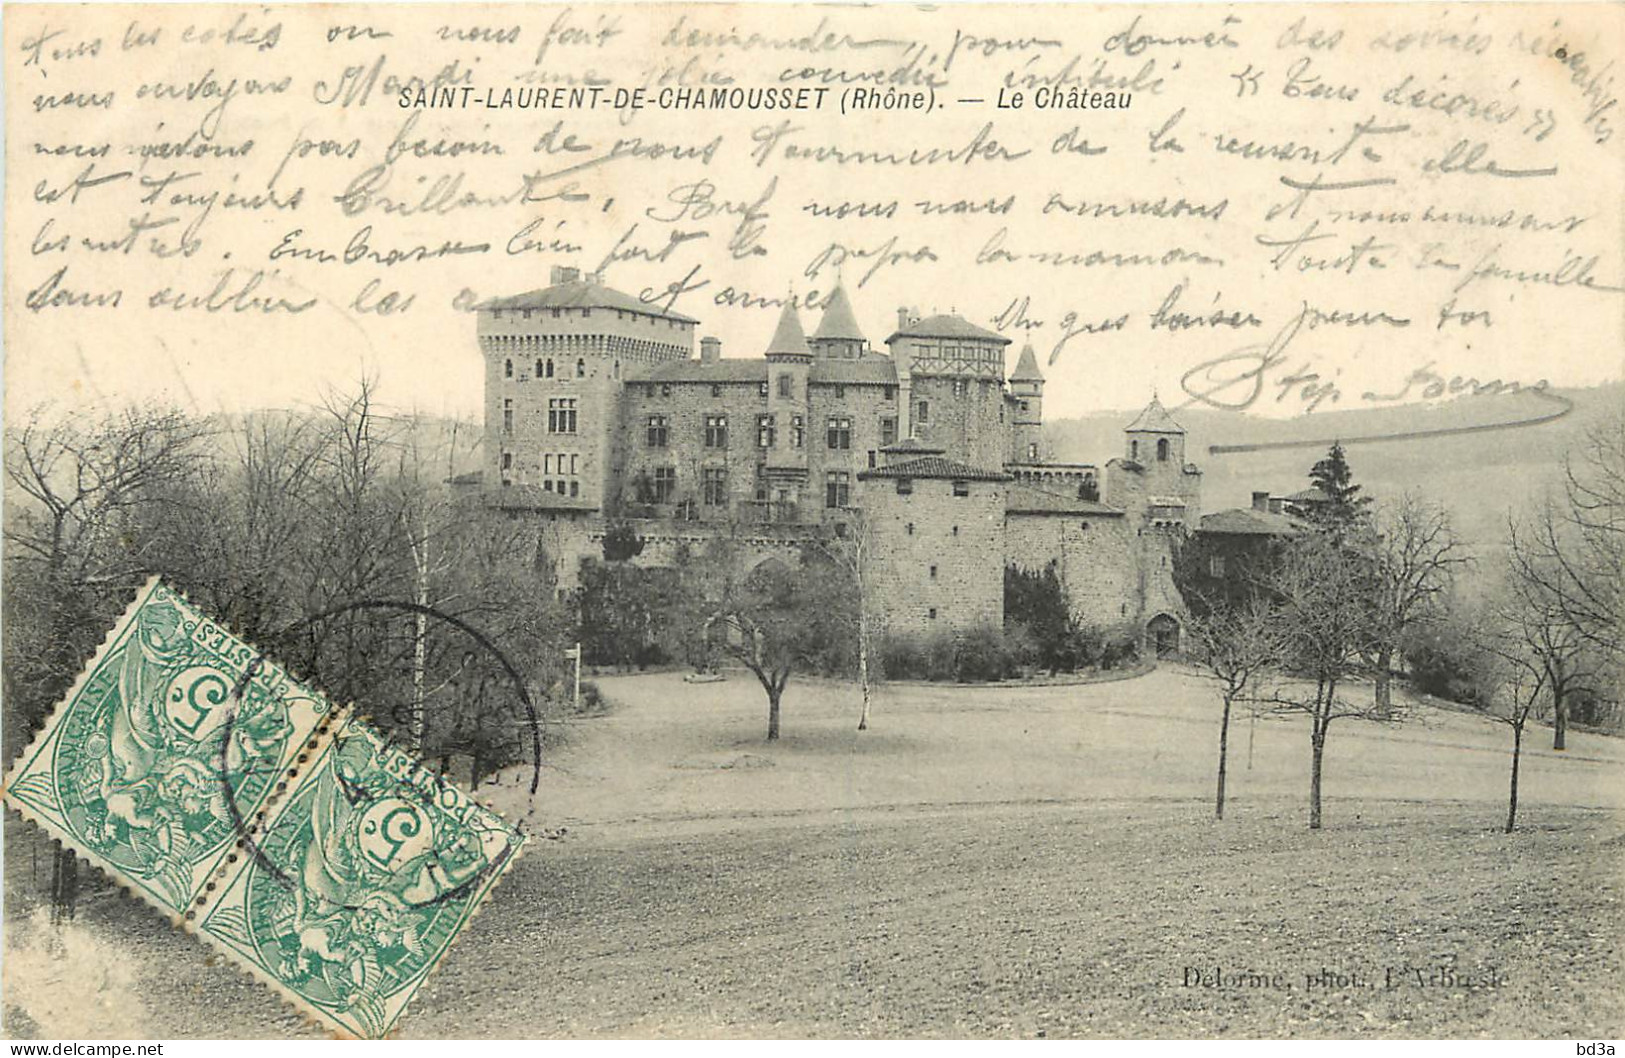 tous les cotés on nous fait demander, pour donner des soirées récréatives
nous envoyons Mardi une jolie comédie intitulé « Tous décorés »
SAINT-LAURENT-DE-CHAMOUSSET (Rhône). — Le Château
nous n'avons pas besoin de nous tourmenter de la reussite elle
est toujours brillante, Bref nous nous amusons et nous amusons
les autres. Embrasse bien fort le papa la maman Toute la famille
sans oublier les et amies Un gros baiser pour toi
Step
POSTES
5
FRANÇAISE
POSTES
5
Delorme, phot., L'Arbresle
bd3a